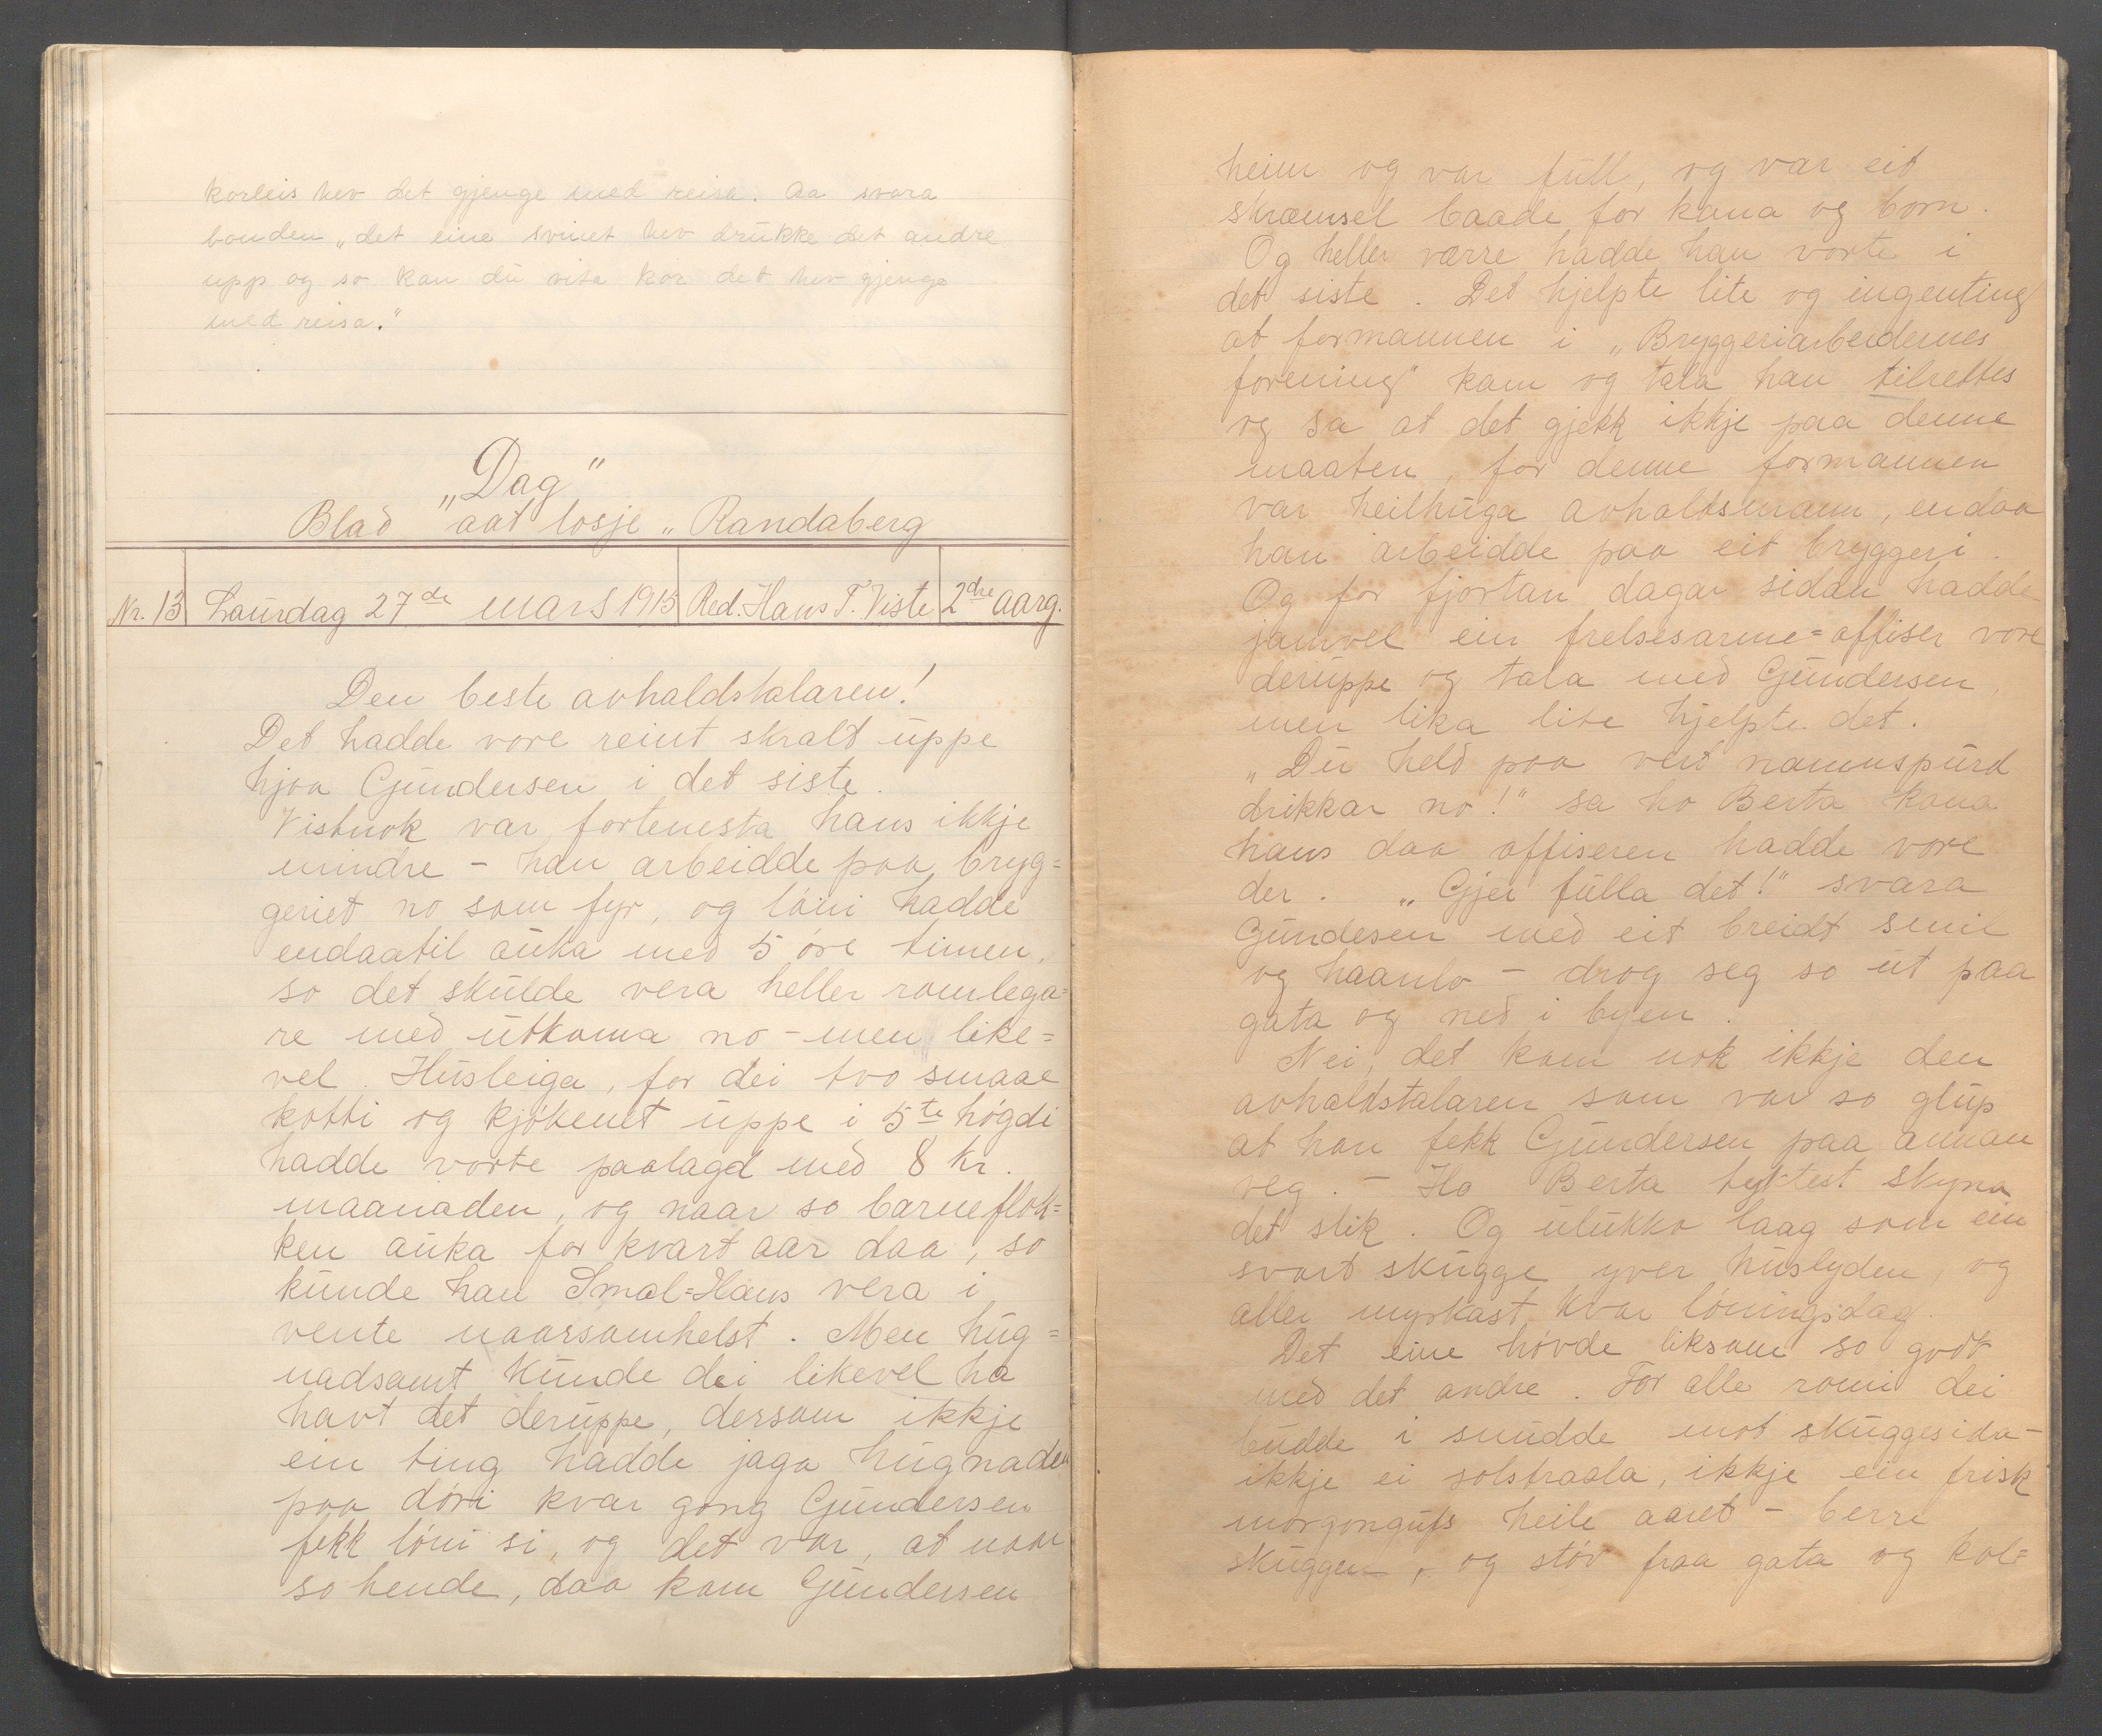 korleis hev det gjenge med reisa. Aa svara
bonden „det eine svinet hev drukke det andre
upp og so kan du vita kor det hev gjenge
med reisa."
„Dag"
Blad aat losje „Randaberg
Nr. 13 Laurdag 27de mars 1915 Red. Hans T. Viste 2dre aarg.
Den beste avhaldstalaren!
Det hadde vore reint skralt uppe
hjaa Gundersen i det siste.
Vistnok var fortenesta hans ikkje
mindre - han arbeidde paa bryg=
geriet no som fyr, og løni hadde
endaatil auka med 5 øre timen,
so det skulde vera heller romlega=
re med utkoma no - men like=
vel. Husleiga, for dei tvo smaae
kotti og kjøkenet uppe i 5te høgdi
hadde vorte paalagd med 8 kr.
maanaden, og naar so barneflok=
ken auka for kvart aar daa, so
kunde han Smal=Hans vera i
vente naarsomhelst. Men hug=
nadsamt kunde dei likevel ha
havt det deruppe, dersom ikkje
ein ting hadde jaga hugnaden
paa døri kvar gong Gundersen
fekk løni si, og det var, at naar
so hende, daa kom Gundersen
heim og var full, og var eit
skræmsel baade for kona og born.
Og heller værre hadde han vorte i
det siste. Det hjelpte lite og ingenting
at formannen i „Bryggeriarbeidernes
forening" kom og tala han tilrettes
og sa at det gjekk ikkje paa denne
maaten, for denne formannen
var heilhuga avholdsmann, endaa
han arbeidde paa eit bryggeri.
Og for fjortan dagar sidan hadde
jamvel ein frelsesarme=offiser vore
deruppe og tala med Gundersen,
men lika lite hjelpte det.
„Du held paa verd namnspurd
drikkar no!" sa ho Berta kona
hans daa offiseren hadde vore
der. „Gjer fulla det!" svara
Gundesen med eit breidt smir
og haanlo - drog seg so ut paa
gata og ned i byen.
Nei, det kom nok ikkje den
avhaldstalaren som var so glup
at han fekk Gundersen paa annan
veg. - Ho Berta tyktest skyna
det slik. Og ulukka laag som ein
svart skugge yver huslyden, og
aller myrkast kvar løningsdag.
Det eine høvde liksom so godt
med det andre. For alle romi dei
budde i snudde mot skuggesida -
ikkje ei solstraala, ikkje ein frisk
morgongufs heile aaret - berre
skuggen, og støv fraa gata og kol=